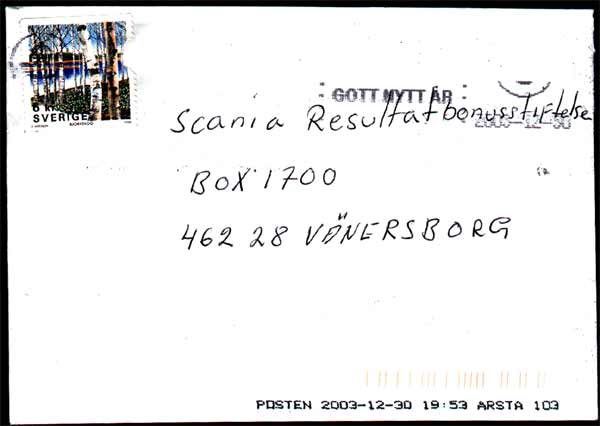 6 KR
SVERIGE
GOTT NYTT ÅR
2003-12-30
Scania Resultatbonusstiftelse
BOX 1700
462 28 VÄNERSBORG
POSTEN 2003-12-30 19:53 ÅRSTA 103